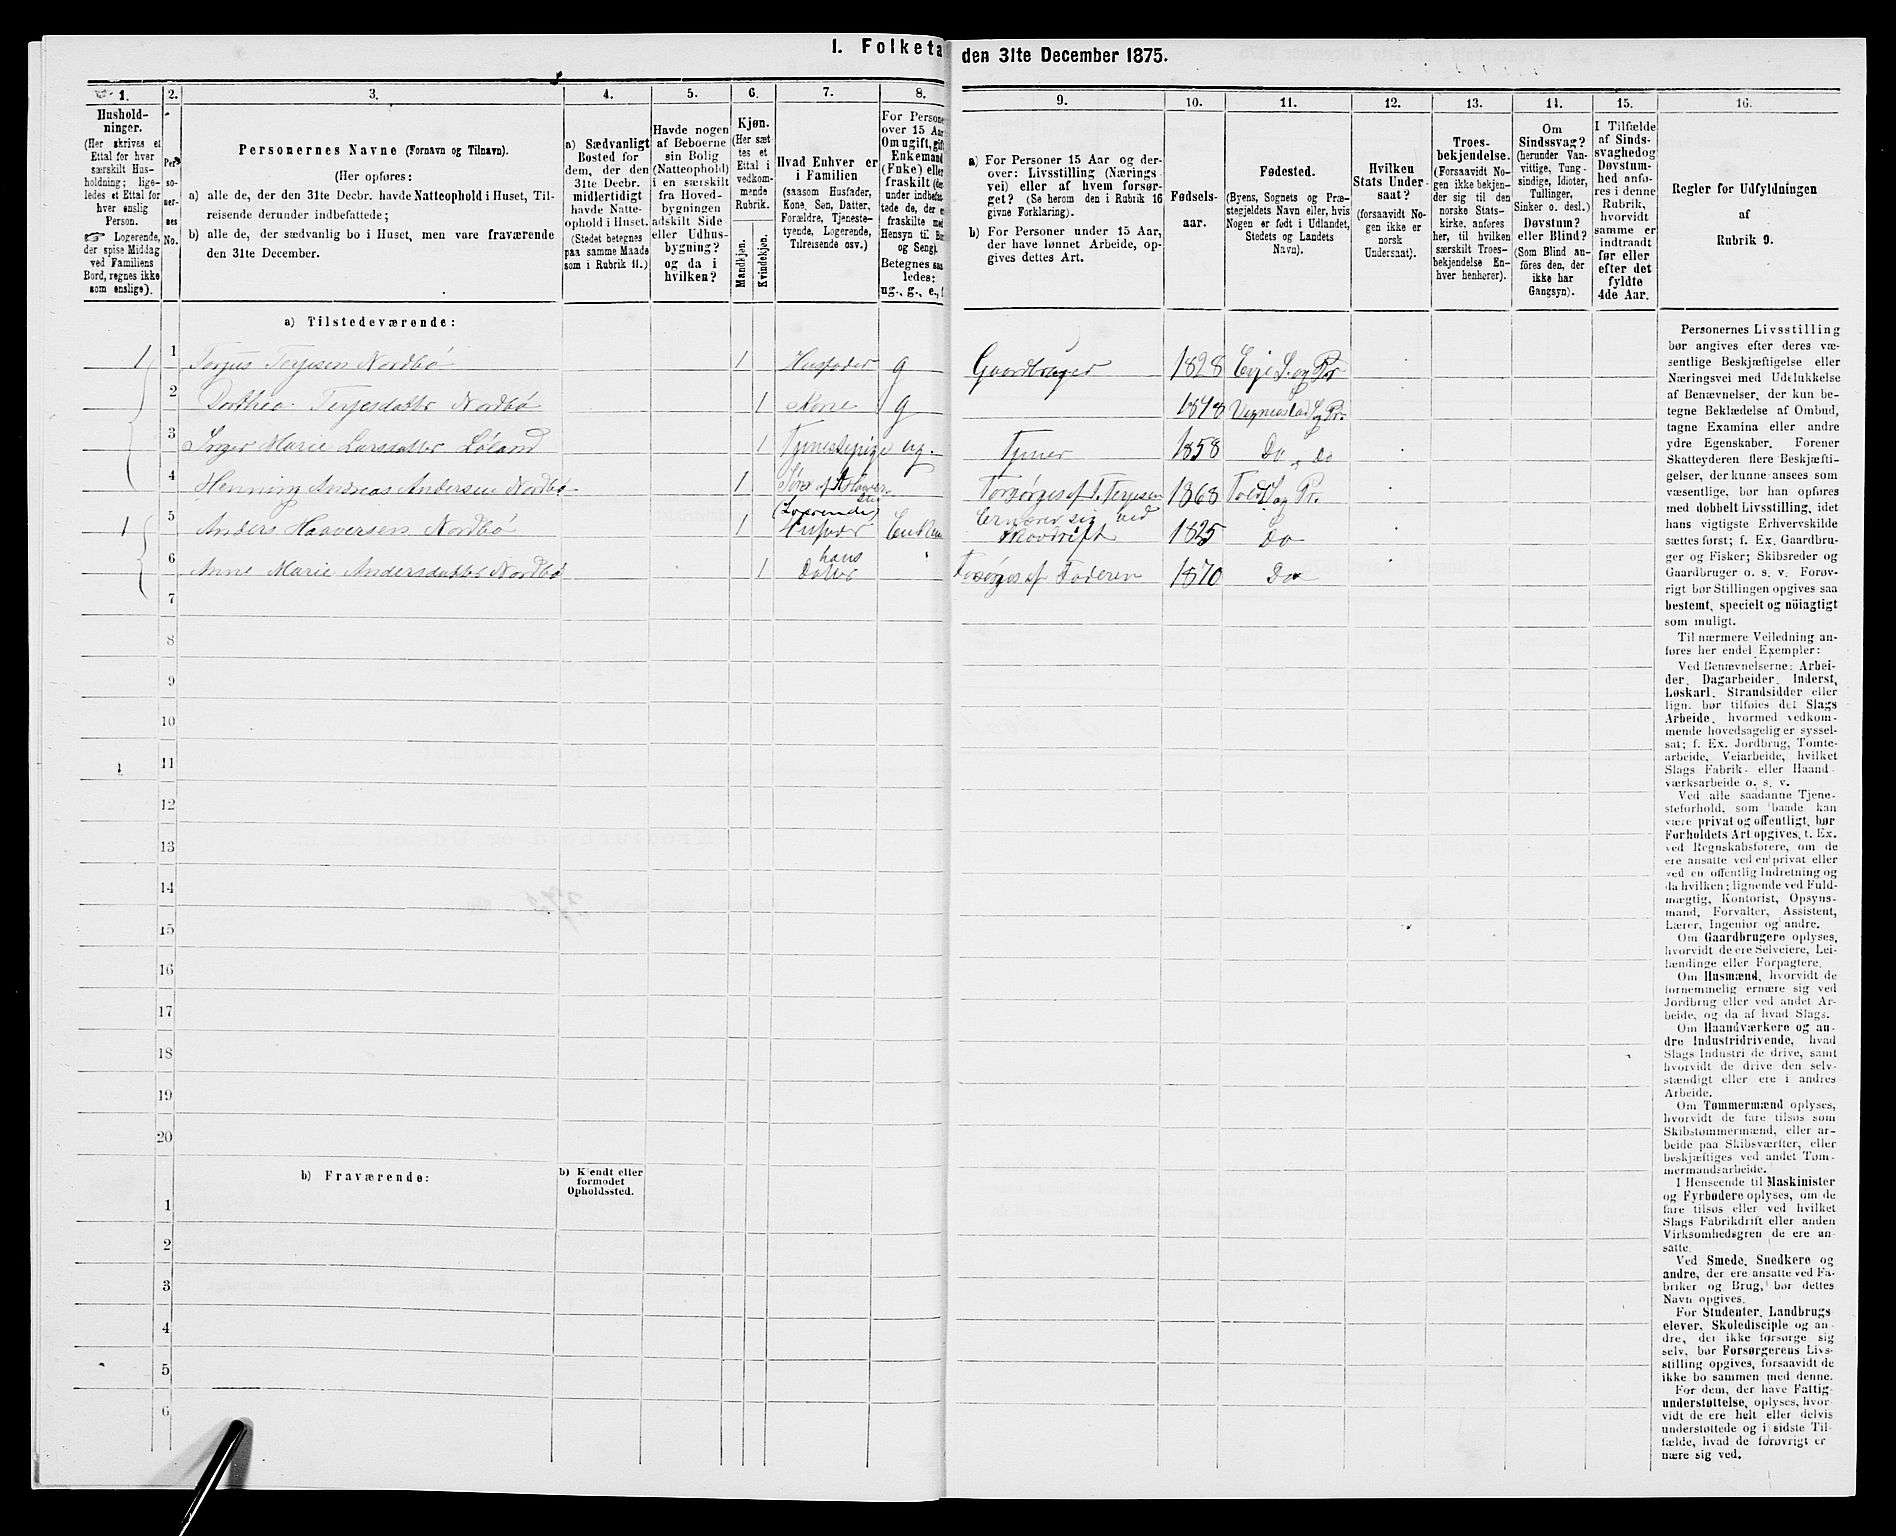 I. Folketa
den 31te December 1875.
1.
2.
3.
4.
5.
6.
7.
8.
9.
10.
11.
12.
13.
14.
15.
16.
Hushold-
ninger.
(Her skrives et
Ettal for hver
særskilt Hus-
holdning; lige-
ledes et Ettal for
hver enslig
Person.
☞ Logerende,
der spise Middag
ved Familiens
Bord, regnes ikke
som enslige).
Per-
so-
ner-
nes
No.
Personernes Navne (Fornavn og Tilnavn).
(Her opføres:
a) alle de, der den 31te Decbr. havde Natteophold i Huset, Til-
reisende derunder indbefattede;
b) alle de, der sædvanlig bo i Huset, men vare fraværende
den 31te December.
a) Sædvanligt
Bosted for
dem, der den
31te Decbr.
midlertidigt
havde Natte-
ophold i Huset.
(Stedet betegnes
paa samme Maade
som i Rubrik 11.)
Havde nogen
af Beboerne
sin Bolig
(Natteophold)
i en særskilt
fra Hoved-
bygningen
adskilt Side-
eller Udhus-
bygning?
og da i
hvilken?
Kjøn.
(Her sæt
tes et
Ettal i
vedkom-
mende
Rubrik.
Mandkjøn.
Kvindekjøn.
Hvad Enhver er
i Familien
(saasom Husfader,
Kone, Søn, Datter,
Forældre, Tjeneste-
tyende, Logerende,
Tilreisende osv.)
For Persone
over 15 Aar
Om ugift, gift
Enkemand
(Enke) eller
fraskilt (de
under indbefat
tede de, der e
fraskilte med
Hensyn til Bo
og Seng).
Betegnes saa
ledes:
ug., g., e., f
a) For Personer 15 Aar og der-
over: Livsstilling (Nærings
vei) eller af hvem forsør-
get? (Se herom den i Rubrik 16
givne Forklaring).
b) For Personer under 15 Aar,
der have lønnet Arbeide, op-
gives dettes Art.
Fødsels-
aar.
Fødested.
(Byens, Sognets og Præ-
stegjeldets Navn eller, hvis
Nogen er født i Udlandet,
Stedets og Landets
Navn).
Hvilken
Stats Under-
saat?
(forsaavidt No-
gen ikke er
norsk
Undersaat).
Troes-
bekjendelse.
(Forsaavidt No-
gen ikke bekjen-
der sig til den
norske Stats-
kirke, anføres
her, til hvilken
særskilt Troes-
bekjendelse En-
hver henhører).
Om
Sindssvag?
(herunder Van-
vittige, Tung-
sindige, Idioter,
Tullinger,
Sinker o. desl.)
Døvstum?
eller Blind?
(Som Blind an-
føres den, der
ikke har
Gangsyn).
I Tilfælde
af Sinds-
svaghed og
Døvstum-
hed anfø-
res i denne
Rubrik,
hvorvidt
samme er
indtraadt
før eller
efter det
fyldte
4de Aar.
Regler for Udfyldningen
af
Rubrik 9.
a) Tilstedeværende:
1 1 Torjus Terjesen Nordbø 1 Husfader g Gaardbruger 1828 Evje S. og Pr
2 Dorthea Terjesdatter Nordbø 1 Kone g 1848 Vegneslad S og Pr.
3 Inger Marie Larsdatter Løland 1 Tjenestepige ug. Tjener 1858 Do Do
4 Henning Andreas Andersen Nordbø 1 Søn af A Haaver- Forsørges af T. Terjesen 1868 S og Pr.
(Logerende)
1 5 Anders Haaversen Nordbø 1 Husfader Ernærer sig ved 1825 Do
Skovdrift
6 Anne Marie Andersdatter Nordbø 1 hans Forsørges af Faderen 1870 Do
Datter
7
8
9
10
11
12
13
14
15
16
17
18
19
20
b) Fraværende:
b) Kjendt eller
formodet
Opholdssted.
1
2
3
4
5
6
Personernes Livsstilling
bør angives efter deres væ-
sentlige Beskjæftigelse eller
Næringsvei med Udelukkelse
af Benævnelser, der kun be-
tegne Beklædelse af Ombud,
tagne Examina eller andre
ydre Egenskaber. Forener
Skatteyderen flere Beskjæfti-
gelser, der kunne ansees som
væsentlige, bør han opføres
med dobbelt Livsstilling, idet
hans vigtigste Erhvervskilde
sættes først; f. Ex. Gaardbru-
ger og Fisker; Skibsreder og
Gaardbruger o. s. v. Forøv-
rigt bør Stillingen opgives saa
bestemt, specielt og nöiagtigt
som muligt.
Til nærmere Veiledning an-
føres her endel Exempler:
Ved Benævnelserne: Arbei-
der, Dagarbeider, Inderst,
Løskarl, Strandsidder eller
lign. bør tilføies det Slags
Arbeide, hvormed vedkom-
mende hovedsagelig er syssel-
sat; f. Ex. Jordbrug, Tomte-
arbeide, Veiarbeide, hvilket
Slags Fabrik- eller Haand
værksarbeide o. s. v.
Ved alle saadanne Tjene-
steforhold, som baade kan
være privat og offentligt, bør
Forholdets Art opgives, t. Ex.
ved Regnskabsførere, om de
ere ansatte ved en privat eller
ved en offentlig Indretning og
da hvilken; lignende ved Fuld-
mægtig, Kontorist, Opsyns-
mand, Forvalter, Assistent,
Lærer, Ingeniør og andre.
Om Gaardbrugere oplyses,
hvorvidt de ere Selveiere, Lei-
lændinge eller Forpagtere.
Om Husmænd, hvorvidt de
fornemmelig ernære sig ved
Jordbrug eller ved andet Ar-
beide, og da af hvad Slags.
Om Haandværkere og an-
dre Industridrivende, hvad
Slags Industri de drive, samt
hvorvidt de drive den selv-
stændigt eller ere i andres
Arbeide.
Om Tømmermænd oplyses,
hvorvidt de fare tilsøs som
Skibstømmermænd, eller ar-
beide paa Skibsværfter, eller
beskjæftiges ved andet Tøm-
mermandsarbeide.
I Henseende til Maskinister
og Fyrbødere oplyses, om de
fare tilsøs eller ved hvilket
Slags Fabrikdrift eller anden
Virksomhedsgren de ere an-
satte.
Ved Smede, Snedkere og
andre, der ere ansatte ved Fa-
briker og Brug, bør dettes
Navn opgives.
For Studenter, Landbrugs
elever, Skoledisciple og an-
dre, der ikke forsørge sig
selv, bør Forsørgerens Livs-
stilling opgives, forsaavidt de
ikke bo sammen med denne.
For dem, der have Fattig-
understøttelse, oplyses, hvor-
vidt de ere helt eller delvis
understøttede og i sidste Til-
fælde, hvad de forøvrigt er
nære sig ved.